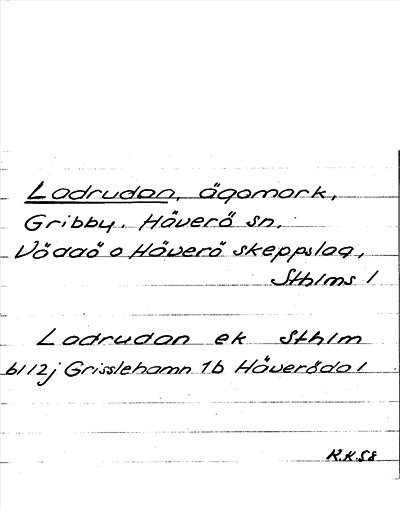 Ladrudan, ägomark,
Gribby, Häverö sn,
Väddö o Häverö skeppslag,
Sthlms l
Ladrudan ek Sthlm
bl 12j Grisslehamn 1b Häverödal
R.K.58